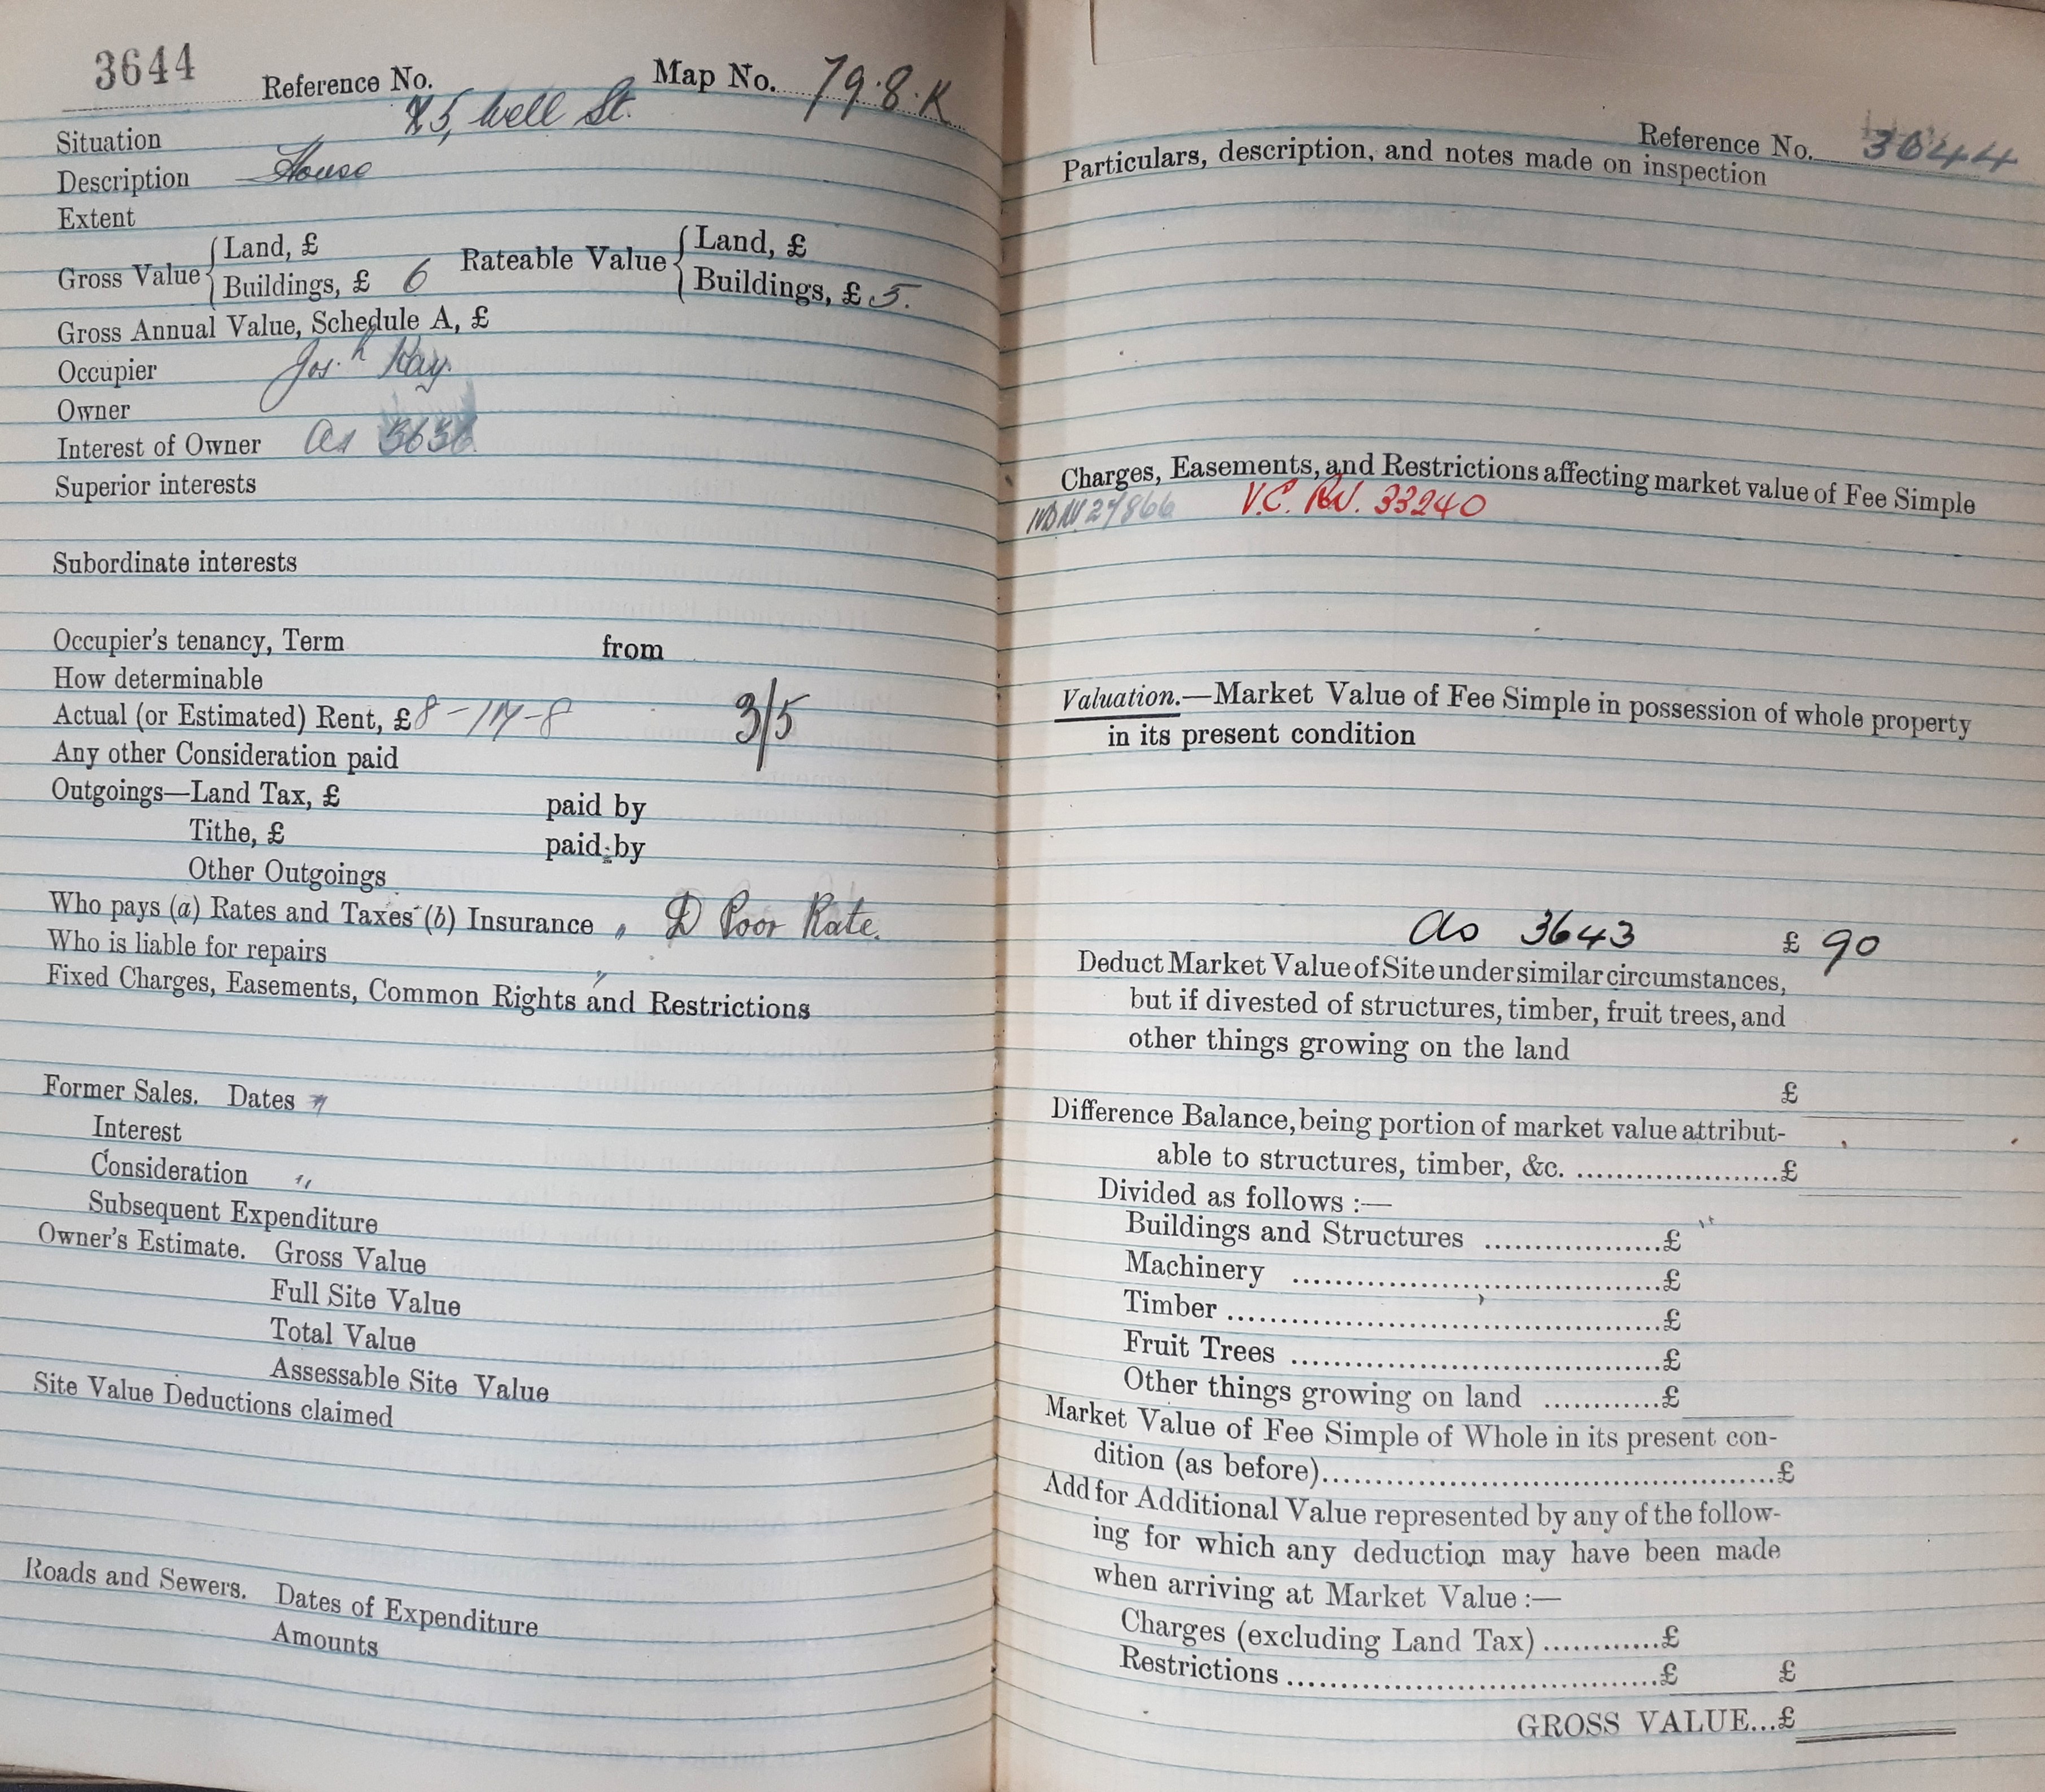 3644
Reference No. Map No. 79.8.K
Situation 5, Well St.
Description House
Extent
Gross Value { Land, £ Rateable Value { Land, £
Buildings, £ 6 Buildings, £ 5.
Gross Annual Value, Schedule A, £
Occupier Jos.h Kay
Owner
Interest of Owner As
Superior interests
Subordinate interests
Occupier's tenancy, Term from
How determinable
Actual (or Estimated) Rent, £ 8-17-8 3/5
Any other Consideration paid
Outgoings—Land Tax, £ paid by
Tithe, £ paid by
Other Outgoings
Who pays (a) Rates and Taxes (b) Insurance Poor Rate.
Who is liable for repairs
Fixed Charges, Easements, Common Rights and Restrictions
Former Sales. Dates
Interest
Consideration
Subsequent Expenditure
Owner's Estimate. Gross Value
Full Site Value
Total Value
Assessable Site Value
Site Value Deductions claimed
Roads and Sewers. Dates of Expenditure
Amounts
Reference No. 3644
Particulars, description, and notes made on inspection
Charges, Easements, and Restrictions affecting market value of Fee Simple
27866 V.C. 33240
Valuation.—Market Value of Fee Simple in possession of whole property
in its present condition
as 3643 £ 90
Deduct Market Value of Site under similar circumstances,
but if divested of structures, timber, fruit trees, and
other things growing on the land
£
Difference Balance, being portion of market value attribut-
able to structures, timber, &c. .....................£
Divided as follows :—
Buildings and Structures ..................£
Machinery .....................................£
Timber ..........................................£
Fruit Trees .....................................£
Other things growing on land ............£
Market Value of Fee Simple of Whole in its present con-
dition (as before)..........................................£
Add for Additional Value represented by any of the follow-
ing for which any deduction may have been made
when arriving at Market Value :—
Charges (excluding Land Tax) ............£
Restrictions ...................................£ £
GROSS VALUE...£